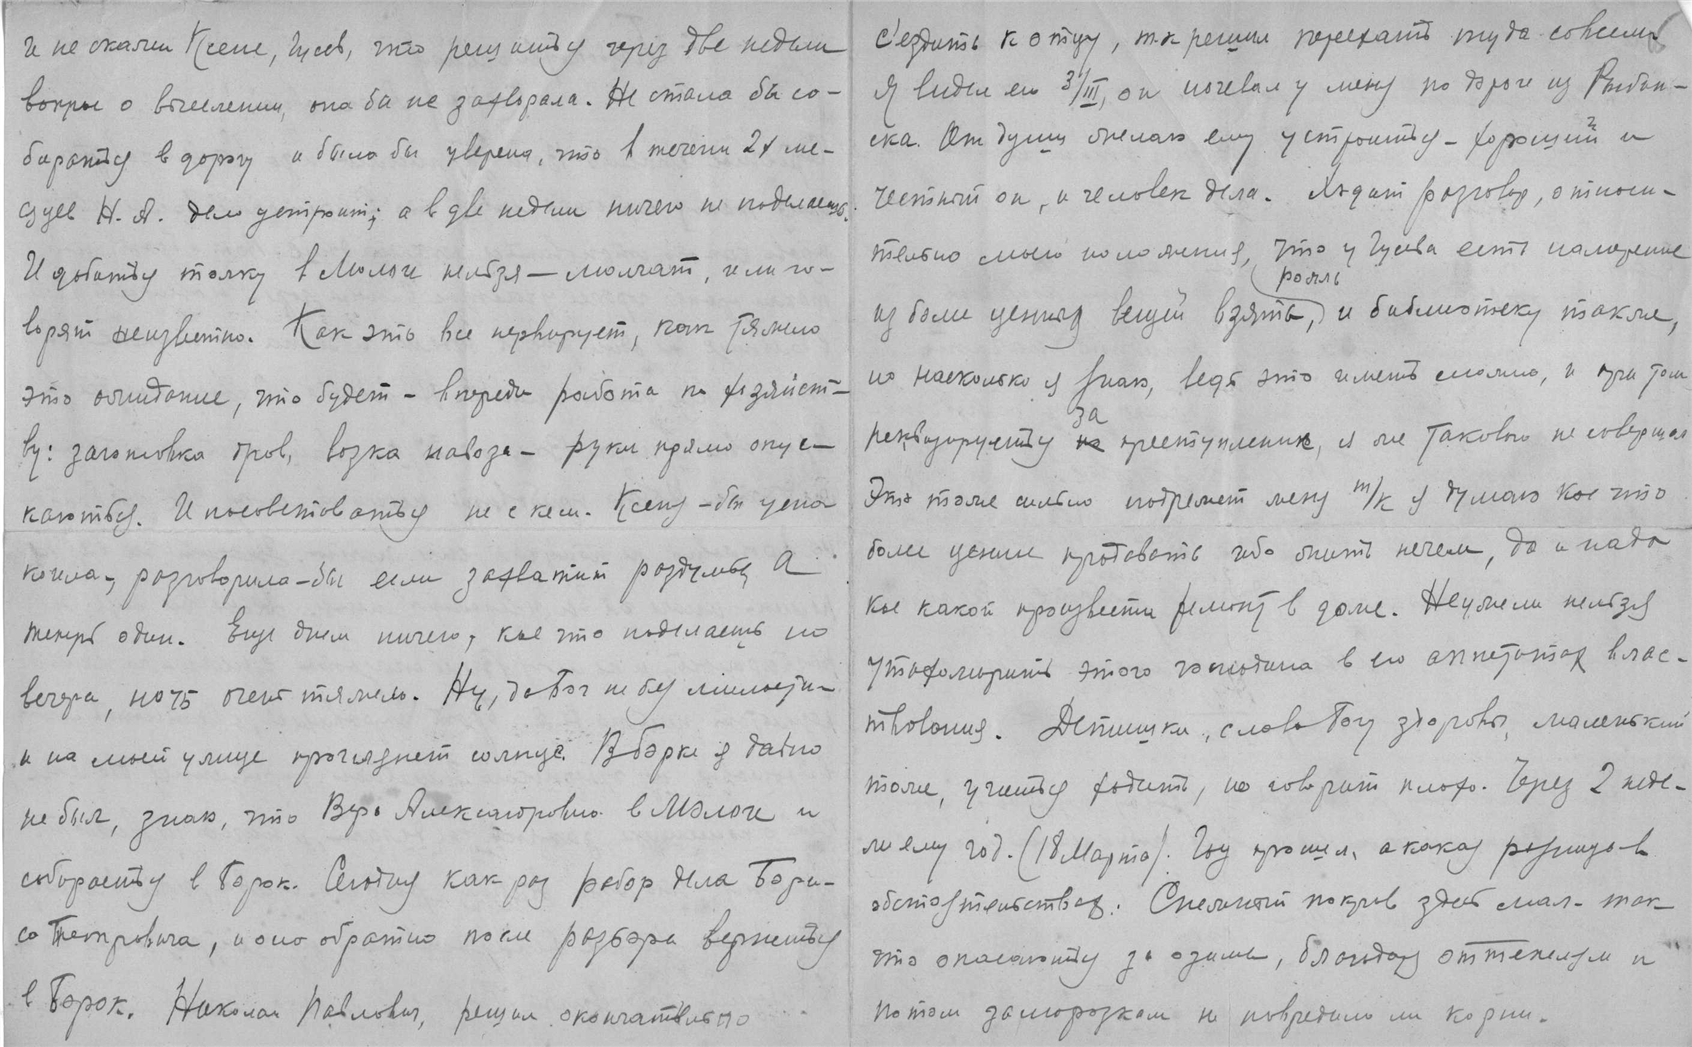 и не скажи Ксене, Гусев, что решиться через две недели
вопрос о выселении, она бы не захворала. Не стала бы со-
бираться в дорогу и была бы уверена, что в течении 2х ме-
сяцев Н.А. дело устроит; а в две недели ничего не поделаешь.
И добиться толку в Мологе нельзя — молчат, или го-
ворят неизвестно. Как это все нервирует, как тяжело
это ожидание, что будет – впереди работа по хозяйст-
ву: заготовка дров, возка навоза – руки прямо опус-
каються. И посоветоваться не с кем. Ксеня – бы успо-
коила, разговорила – бы если захватит раздумье, а
теперь один. Еще днем ничего, кое что поделаешь но
вечера, ночь очень тяжело. Ну, да Бог не без милости –
и на моей улице проглянет солнце. В Борке я давно
не был, знаю, что Вера Александровна в Мологе и
собирается в Борок. Сегодня как раз разбор дела Бори-
са Петровича, и она обратно после разбора вернеться
в Борок. Николай Павлович, решил окончательно
съездить к отцу, т.к решил переехать туда совсем.
Я видел его 3/III, он ночевал у меня по дороге из Рыбин-
ска. От души желаю ему устроиться – хороший и
честный он, и человек дела. Ходит разговор, относи-
тельно моего положения, что у Гусева есть намерение
рояль
из более ценных вещей взять, и библиотеку также,
но насколько я знаю, ведь это иметь можно, и при том
за
реквизируеться преступления, я же такового не совершал
Это тоже сильно подрежет меня т/к я думаю кое что
более ценное продавать ибо жить нечем, да и надо
кое какой произвести ремонт в доме. Неужели нельзя
утихомирить этого господина в его аппетитах влас-
твования. Детишки, слава Богу здоровы, маленький
тоже, учиться ходить, но говорит плохо. Через 2 неде-
ли ему год. (18 Марта). Год прошел, а какая разница в
обстоятельствах. Снежный покров здесь мал – так
что опасаються за озими, благодаря оттепелям и
потом заморозкам не повредило ли корни.